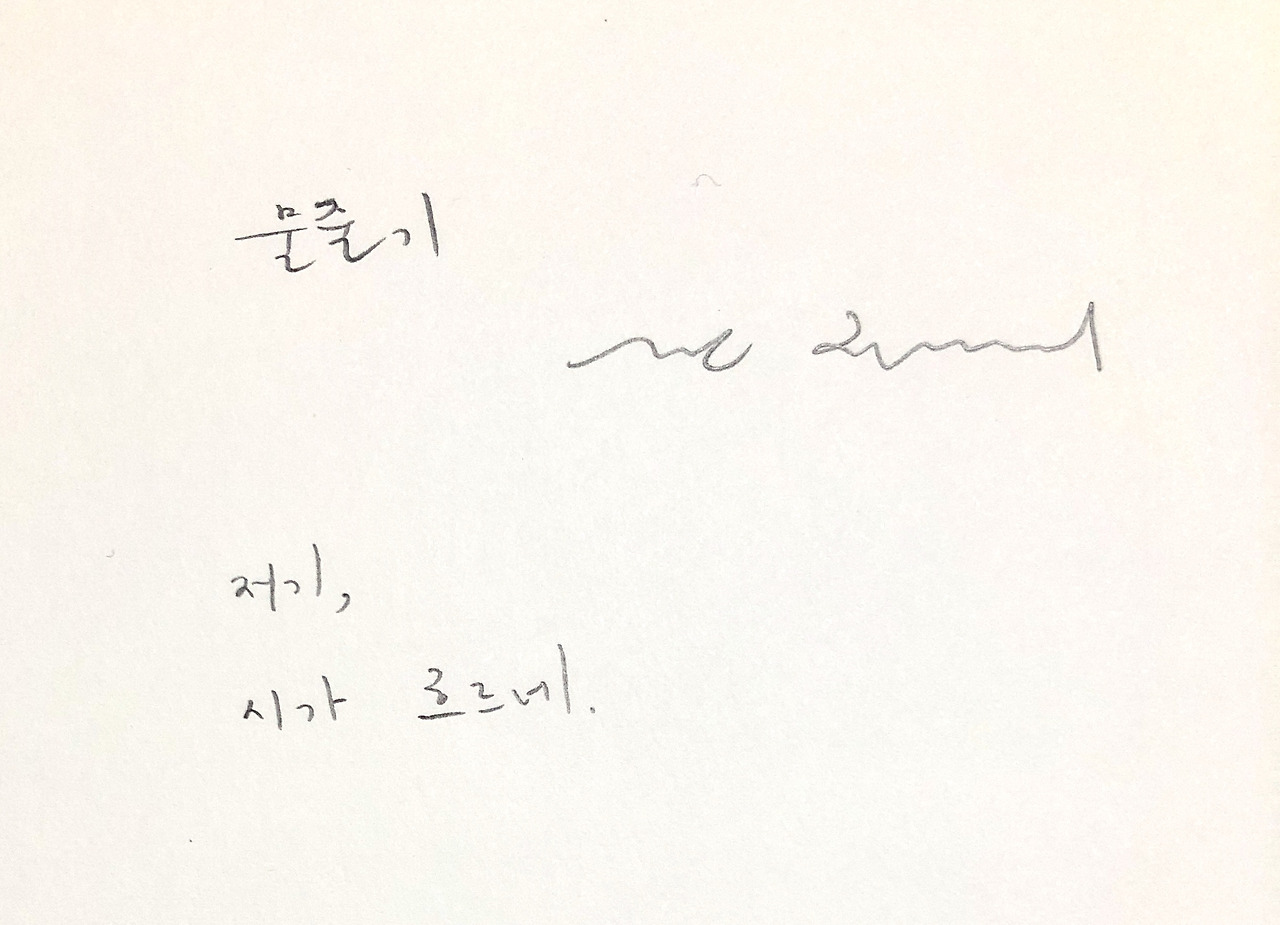 물줄기
저기,
시가 흐르네.